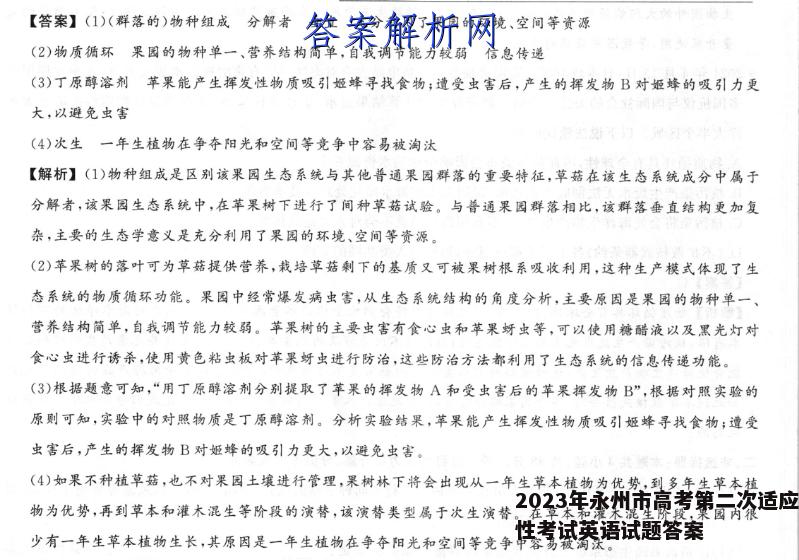 【答案】(1)(群落的)物种组成 分解者 分利用了果园的环境、空间等资源
答案解析网
(2)物质循环 果园的物种单一、营养结构简单,自我调节能力较弱 信息传递
(3)丁原醇溶剂 苹果能产生挥发性物质吸引姬蜂寻找食物;遭受虫害后,产生的挥发物 B 对姬蜂的吸引力更
大,以避免虫害
(4)次生 一年生植物在争夺阳光和空间等竞争中容易被淘汰
【解析】(1)物种组成是区别该果园生态系统与其他普通果园群落的重要特征,草菇在该生态系统成分中属于
分解者,该果园生态系统中,在苹果树下进行了间种草菇试验。与普通果园群落相比,该群落垂直结构更加复
杂,主要的生态学意义是充分利用了果园的环境、空间等资源。
(2)苹果树的落叶可为草菇提供营养,栽培草菇剩下的基质又可被果树根系吸收利用,这种生产模式体现了生
态系统的物质循环功能。果园中经常爆发病虫害,从生态系统结构的角度分析,主要原因是果园的物种单一、
营养结构简单,自我调节能力较弱。苹果树的主要虫害有食心虫和苹果蚜虫等,可以使用糖醋液以及黑光灯对
食心虫进行诱杀,使用黄色粘虫板对苹果蚜虫进行防治,这些防治方法都利用了生态系统的信息传递功能。
(3)根据题意可知,“用丁原醇溶剂分别提取了苹果的挥发物 A 和受虫害后的苹果挥发物 B”,根据对照实验的
原则可知,实验中的对照物质是丁原醇溶剂。分析实验结果,苹果能产生挥发性物质吸引姬蜂寻找食物;遭受
虫害后,产生的挥发物 B 对姬蜂的吸引力更大,以避免虫害。
(4)如果不种植草菇,也不对果园土壤进行管理,果树林下将会出现从一年生草本植物为优势,到多年生草本植
物为优势,再到草本和灌木混生等阶段的演替,该演替类型属于次生演替。在草本和灌木混生阶段,果园内很
少有一年生草本植物生长,其原因是一年生植物在争夺阳光和空间等竞争中容易被淘汰。
2023年永州市高考第二次适应
性考试英语试题答案